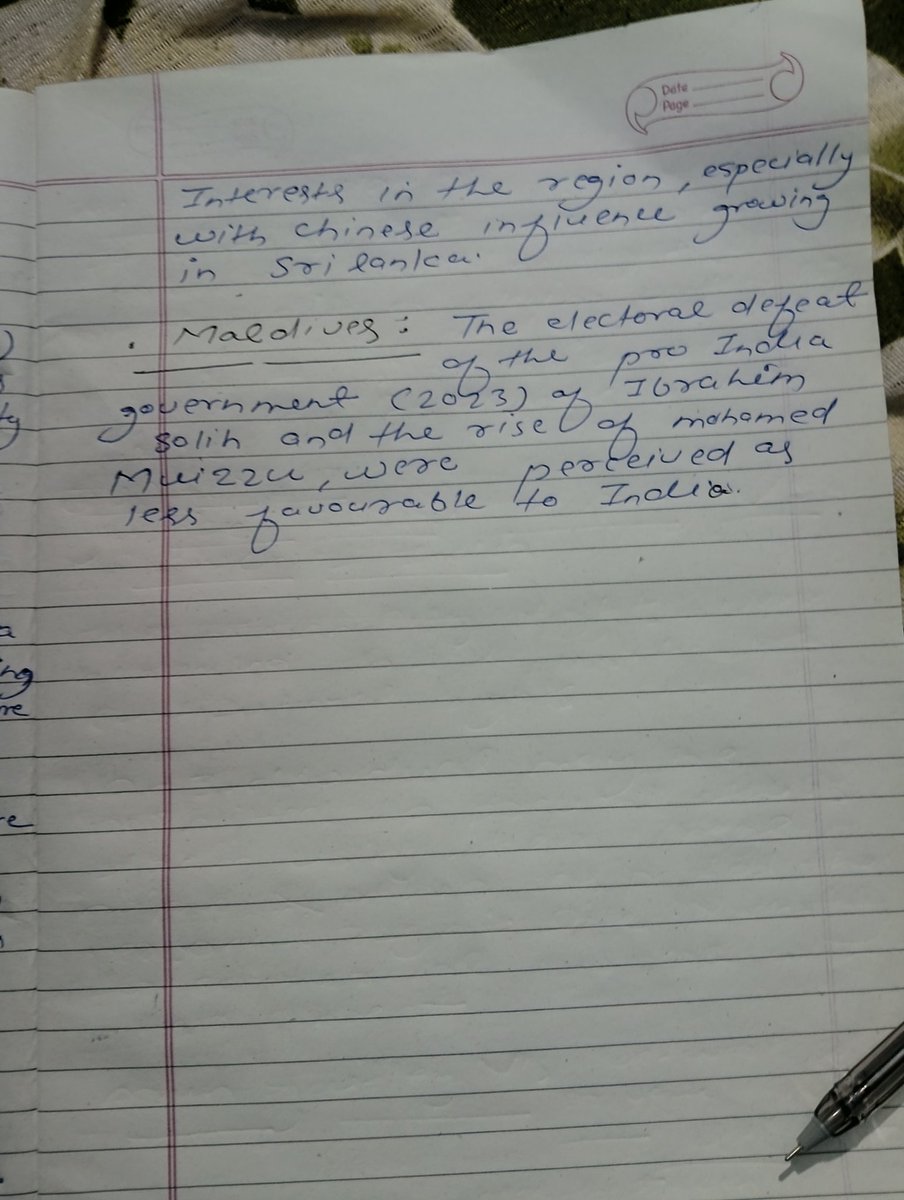 Date
Page
Interests in the region, especially
with chinese influence growing
in Sri lanka.
. Maldives: The electoral defeat
of the pro India
government (2023) of Ibrahim
Solih and the rise of mohamed
Muizzu, were perceived as
less favourable to India.
ty
a
ng
re
e